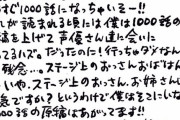 すぐ1000話になっちゃいそー!!
が読まれる頃には僕は1000話の
稿を上げて声優さん達に会いに
ってるハズ。だったのに!行っちゃダメなん
残念…。ステージ上のおっさんおばさん
いや、ステージ上のおっさん、お姉さん
気ですか?というわけで僕はそこにいな
00話の原稿はあがってます!!